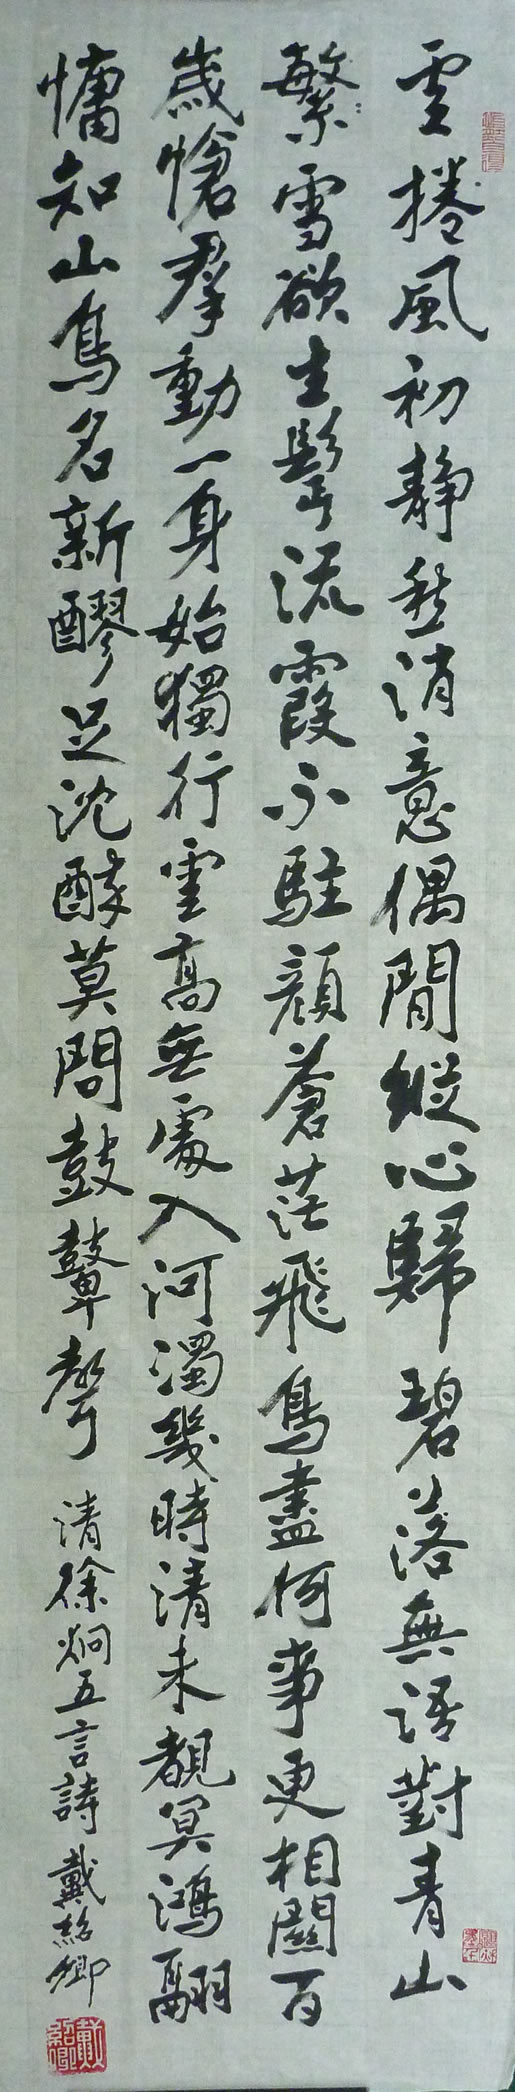 雲捲風初静愁消意偶閒縱心歸碧落無語對青山
繁雪欲生髩流霞不駐顔蒼茫飛鳥盡何事更相關百
歲愴羣動一身始獨行雲高無處入河濁幾時清未覩冥鴻翮
慵知山鳥名新醪足沈醉莫問鼓鼙聲 清徐炯五言詩 戴紹卿
戴紹卿